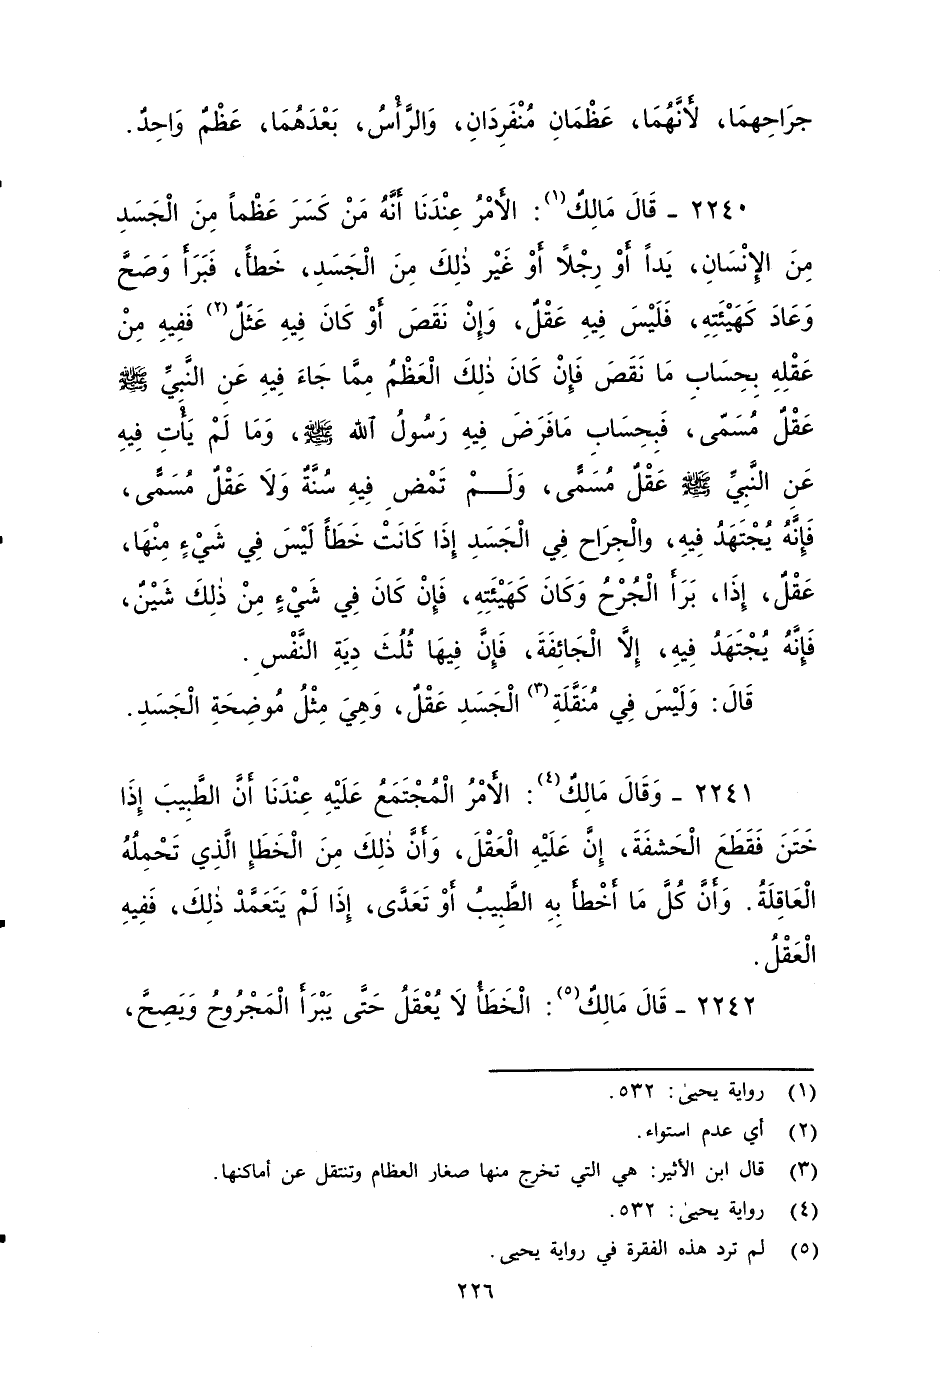 جِرَاحِهِمَا، لأَنَّهُمَا، عَظْمَانِ مُنْفَرِدَانِ، وَالرَّأْسُ، بَعْدَهُمَا، عَظْمٌ وَاحِدٌ.
٢٢٤٠ ـ قَالَ مَالِكٌ(١): الأَمْرُ عِنْدَنَا أَنَّهُ مَنْ كَسَرَ عَظْماً مِنَ الْجَسَدِ
مِنَ الإِنْسَانِ، يَداً أَوْ رِجْلًا أَوْ غَيْر ذٰلِكَ مِنَ الْجَسَدِ، خَطأً، فَبَرَأَ وَصَحَّ
وَعَادَ كَهَيْئَتِهِ، فَلَيْسَ فِيهِ عَقْلٌ، وَإِنْ نَقَصَ أَوْ كَانَ فِيهِ عَثَلٌ(٢) فَفِيهِ مِنْ
عَقْلِهِ بِحِسَابِ مَا نَقَصَ فَإِنْ كَانَ ذٰلِكَ الْعَظْمُ مِمَّا جَاءَ فِيهِ عَنِ النَّبِيِّ ﷺ
عَقْلٌ مُسَمَّى، فَبِحِسَابِ مَافَرَضَ فِيهِ رَسُولُ ٱلله ﷺ، وَمَا لَمْ يَأْتِ فِيهِ
عَنِ النَّبِيِّ ﷺ عَقْلٌ مُسَمًّى، وَلَـــمْ تَمْضِ فِيهِ سُنَّةٌ وَلَا عَقْلٌ مُسَمًّى،
فَإِنَّهُ يُجْتَهَدُ فِيهِ، والْجِرَاحِ فِي الْجَسَدِ إِذَا كَانَتْ خَطَأً لَيْسَ فِي شَيْءٍ مِنْهَا،
عَقْلٌ، إِذَا، بَرَأَ الْجُرْحُ وَكَانَ كَهَيْئَتِهِ، فَإِنْ كَانَ فِي شَيْءٍ مِنْ ذٰلِكَ شَيْنٌ،
فَإِنَّهُ يُجْتَهَدُ فِيهِ، إِلَّا الْجَائِفَةَ، فَإِنَّ فِيهَا ثُلُثَ دِيَةِ النَّفْسِ.
قَالَ: وَلَيْسَ فِي مُنَقَّلَةِ(٣) الْجَسَدِ عَقْلٌ، وَهِيَ مِثْلُ مُوضِحَةِ الْجَسَدِ.
٢٢٤١ ـ وَقَالَ مَالِكٌ(٤): الأَمْرُ الْمُجْتَمَعُ عَلَيْهِ عِنْدَنَا أَنَّ الطَّبِيبَ إِذَا
خَتَنَ فَقَطَعَ الْحَشفَةَ، إِنَّ عَلَيْهِ الْعَقْلَ، وَأَنَّ ذٰلِكَ مِنَ الْخَطَإِ الَّذِي تَحْمِلُهُ
الْعَاقِلَةُ. وَأَنَّ كُلَّ مَا أَخْطأَ بِهِ الطَّبِيبُ أَوْ تَعَدَّى، إِذَا لَمْ يَتَعَمَّدْ ذٰلِكَ، فَفِيهِ
الْعَقْلُ.
٢٢٤٢ ـ قَالَ مَالِكٌ(٥): الْخَطَأُ لَا يُعْقَلُ حَتَّى يَبْرَأَ الْمَجْرُوحُ وَيَصِحَّ،
(١) رواية يحيىٰ: ٥٣٢.
(٢) أي عدم استواء.
(٣) قال ابن الأثير: هي التي تخرج منها صغار العظام وتنتقل عن أماكنها.
(٤) رواية يحيىٰ: ٥٣٢.
(٥) لم ترد هذه الفقرة في رواية يحيى.
٢٢٦